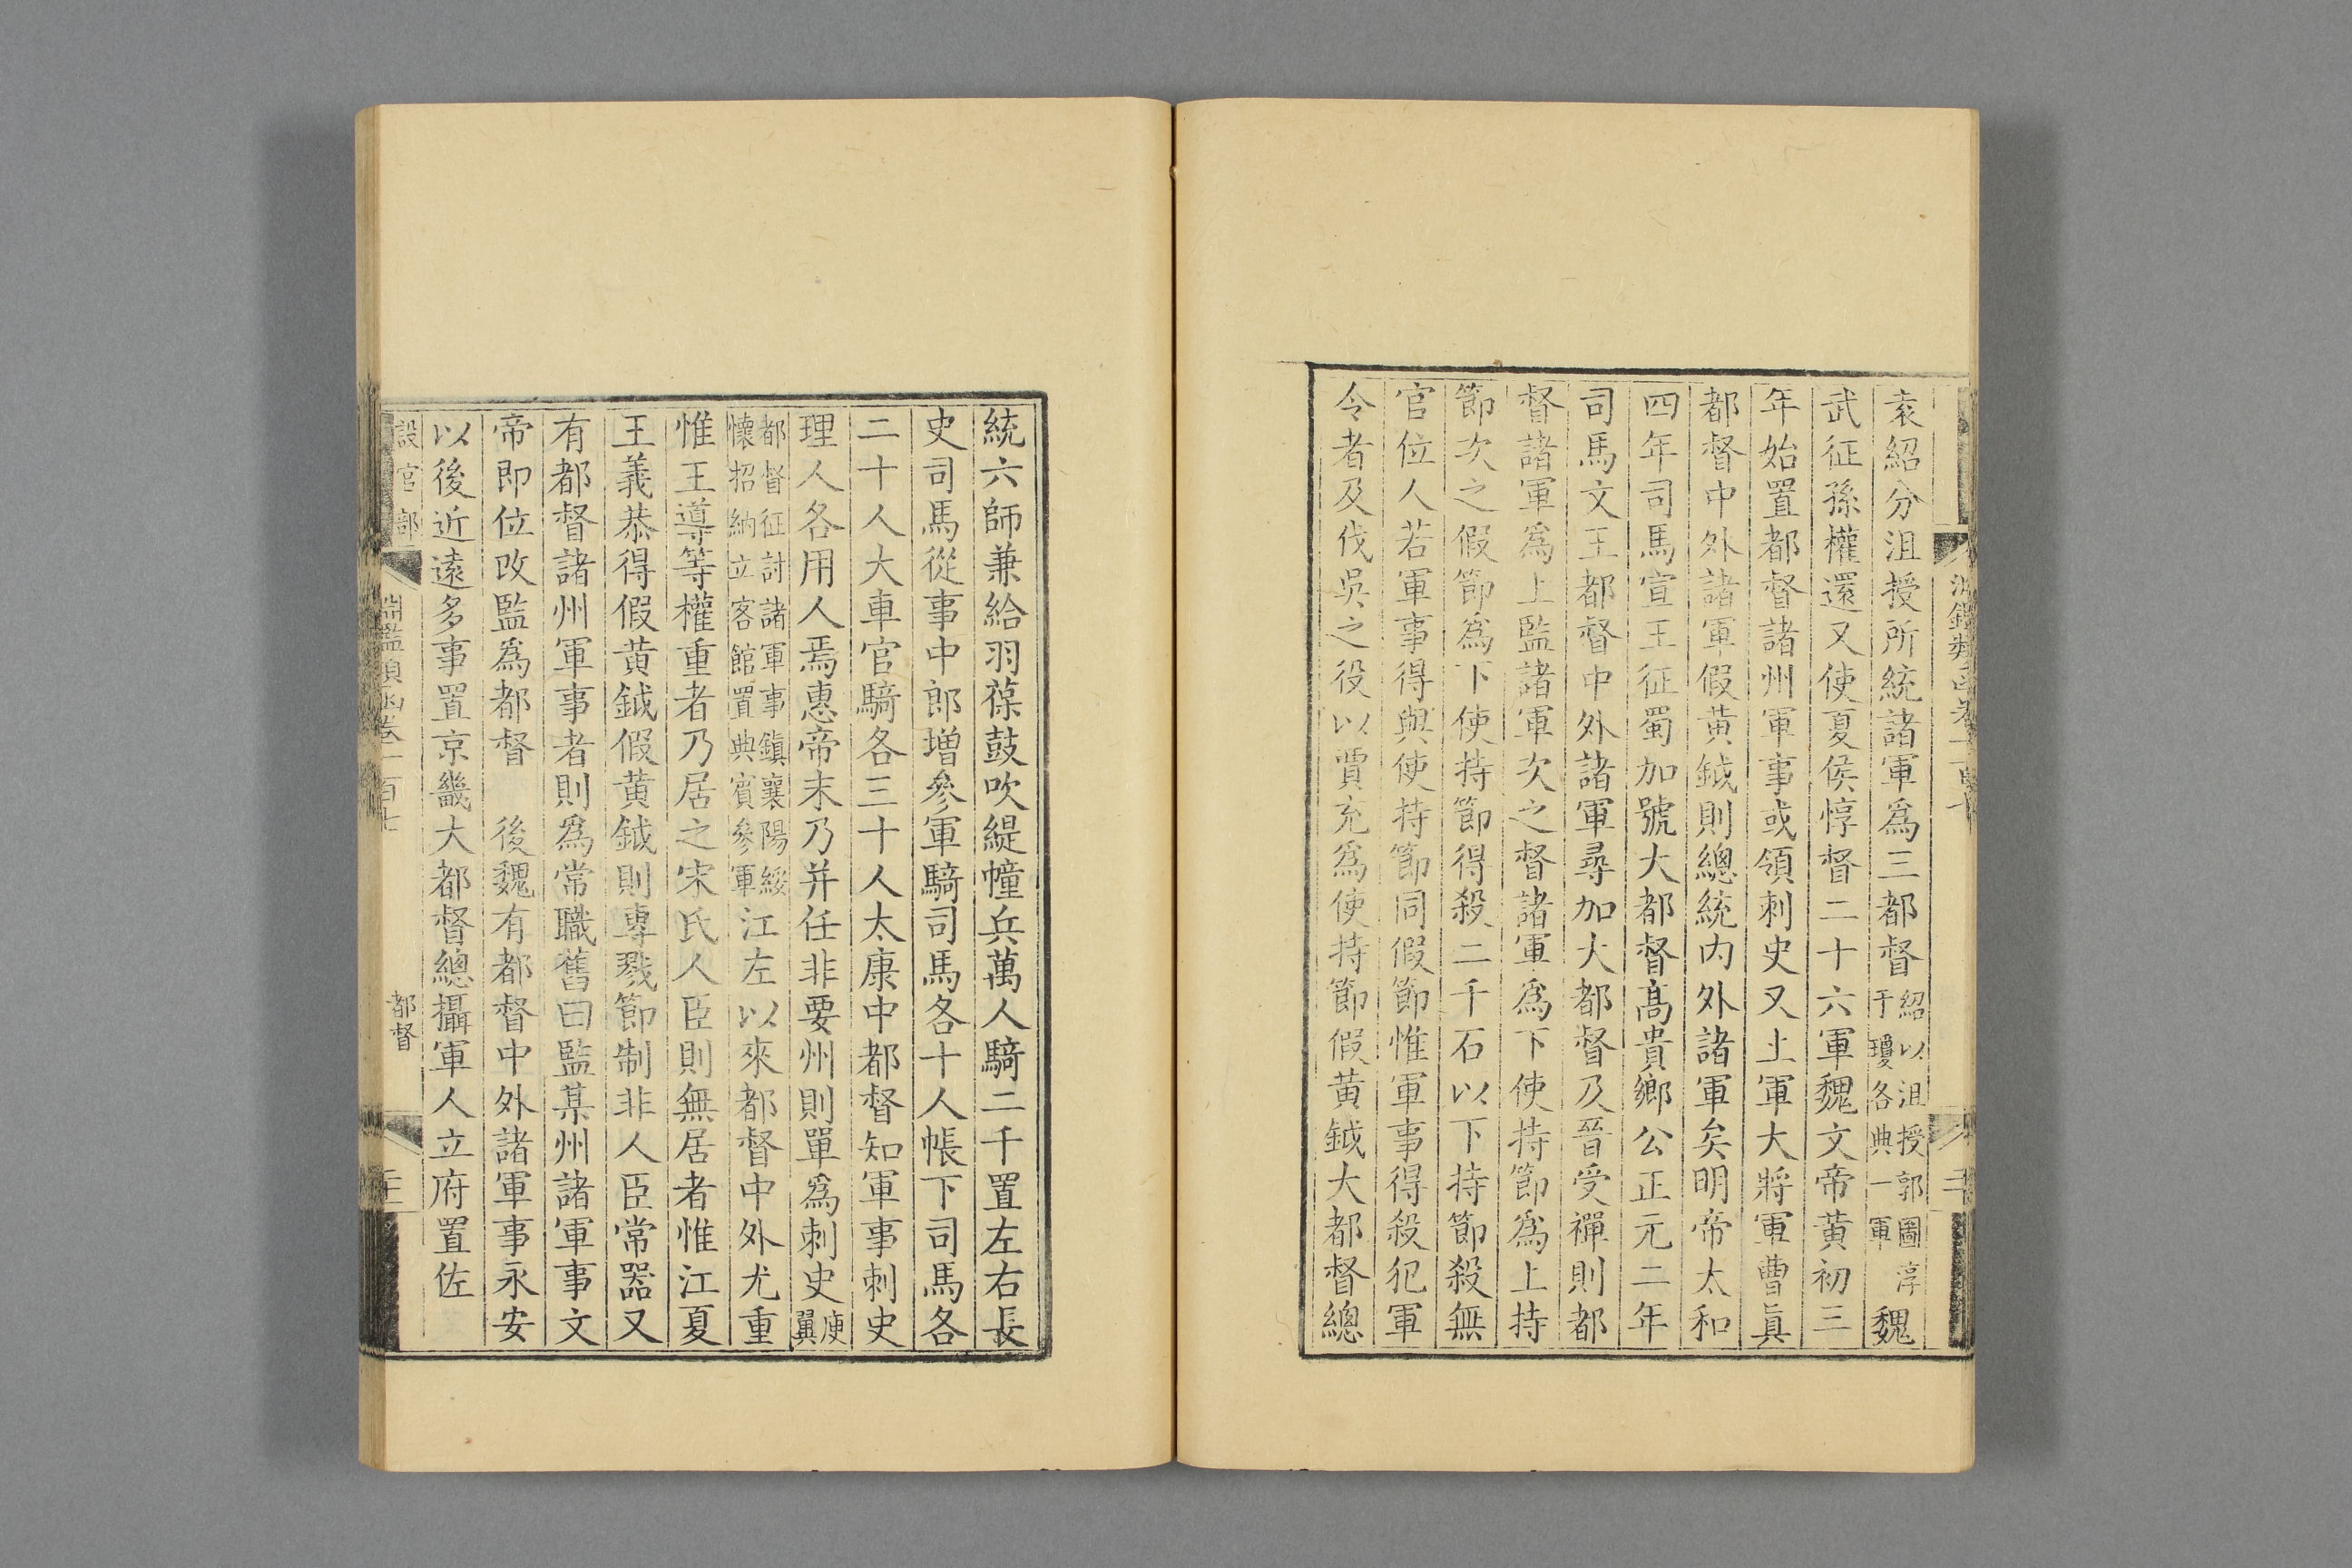 袁紹分沮授所統諸軍爲三都督紹以沮授郭圖淳于瓊各典一軍魏
武征孫權還又使夏侯惇督二十六軍魏文帝黃初三
年始置都督諸州軍事或領刺史又上軍大將軍曹真
都督中外諸軍假黃鉞則總統內外諸軍矣明帝太和
四年司馬宣王征蜀加號大都督高貴鄉公正元二年
司馬文王都督中外諸軍尋加大都督及晉受禪則都
督諸軍爲上監諸軍次之督諸軍爲下使持節爲上持
節次之假節爲下使持節得殺二千石以下持節殺無
官位人若軍事得與使持節同假節惟軍事得殺犯軍
令者及伐吳之役以賈充爲使持節假黃鉞大都督總
統六師兼給羽葆鼓吹緹幢兵萬人騎二千置左右長
史司馬從事中郎增參軍騎司馬各十人帳下司馬各
二十人大車官騎各三十人太康中都督知軍事刺史
理人各用人焉惠帝末乃并任非要州則單爲刺史庾翼
都督征討諸軍事鎮襄陽綏懷招納立客館置典賓參軍江左以來都督中外尤重
惟王導等權重者乃居之宋氏人臣則無居者惟江夏
王義恭得假黃鉞假黃鉞則專戮節制非人臣常器又
有都督諸州軍事者則爲常職舊曰監某州諸軍事文
帝即位改監爲都督　後魏有都督中外諸軍事永安
以後近遠多事置京畿大都督總攝軍人立府置佐
設官部
淵鑑類函卷一百七
都督